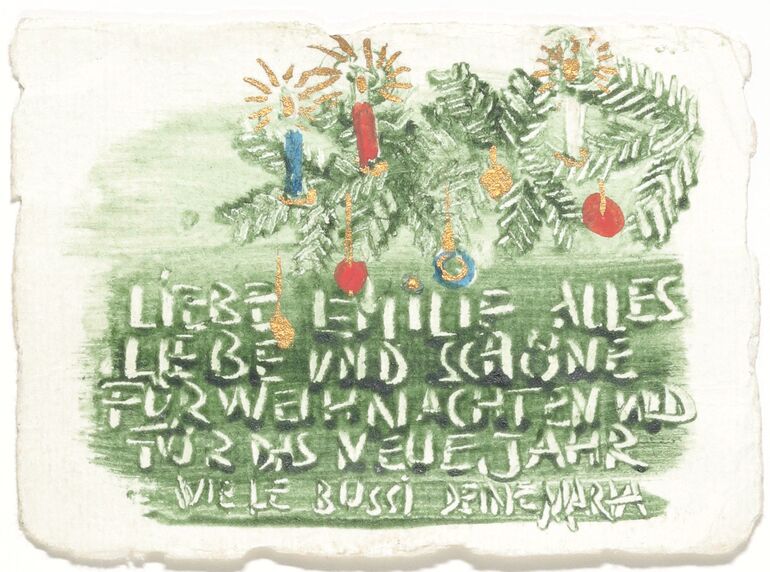 LIEBE EMILIE ALLES
LIEBE UND SCHÖNE
FÜR WEIHNACHTEN UND
FÜR DAS NEUE JAHR
VIELE BUSSI DEINE MARIA